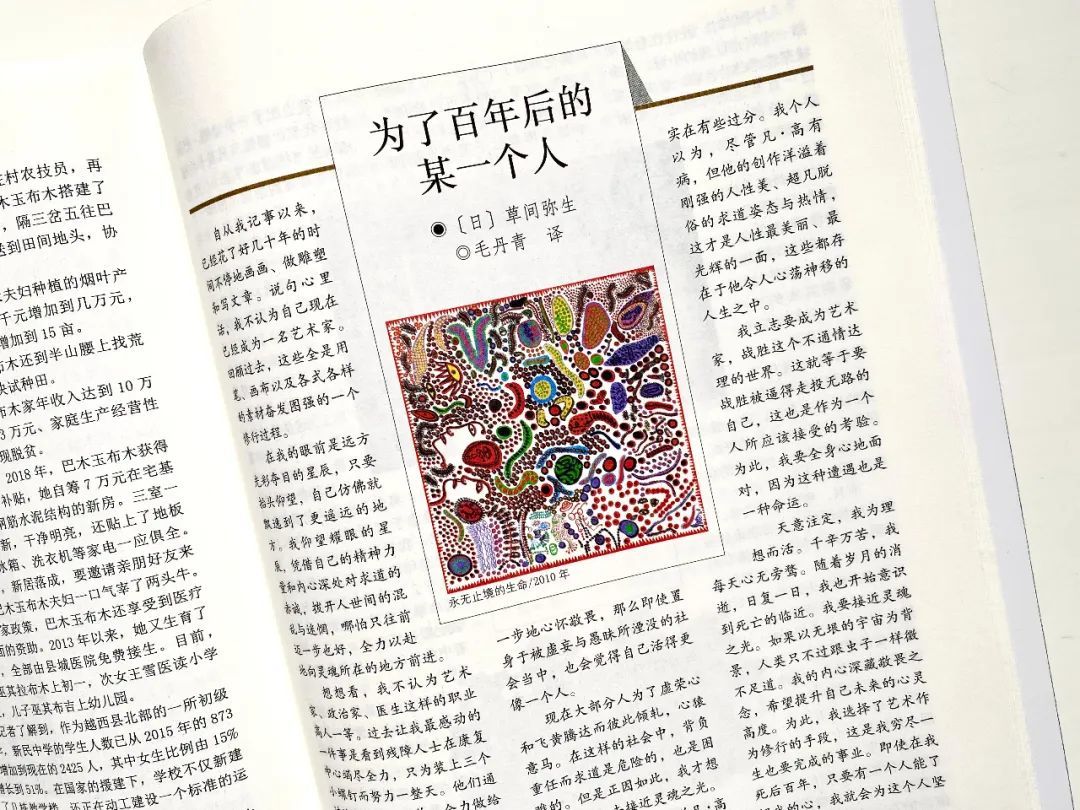 庄村农技员，再
木玉布木搭建了
，隔三岔五往巴
送到田间地头，协
夫妇种植的烟叶产
千元增加到几万元，
增加到 15 亩。
布木还到半山腰上找荒
块试种田。
布木家年收入达到 10 万
3 万元、家庭生产经营性
现脱贫。
2018 年，巴木玉布木获得
补贴，她自筹 7 万元在宅基
钢筋水泥结构的新房。三室一
新，干净明亮，还贴上了地板
冰箱、洗衣机等家电一应俱全。
，新居落成，要邀请亲朋好友来
巴木玉布木夫妇一口气宰了两头牛。
家政策，巴木玉布木还享受到医疗
面的资助。2013 年以来，她又生育了
，全部由县城医院免费接生。目前，
巫其拉布木上初一，次女王雪医读小学
，儿子巫其布吉上幼儿园。
记者了解到，作为越西县北部的一所初级
，新民中学的学生人数已从 2015 年的 873
增加到现在的 2425 人，其中女生比例由 15%
增长到 51%。在国家的援建下，学校不仅新建
还正在动工建设一个标准的运
为了百年后的
某一个人
●〔日〕草间弥生
◎毛丹青 译
自从我记事以来，
已经花了好几十年的时
间不停地画画、做雕塑
和写文章。说句心里
话，我不认为自己现在
已经成为一名艺术家。
回顾过去，这些全是用
笔、画布以及各式各样
的素材奋发图强的一个
修行过程。
在我的眼前是远方
光彩夺目的星辰，只要
抬头仰望，自己仿佛就
飘逸到了更遥远的地
方。我仰望耀眼的星
辰，凭借自己的精神力
量和内心深处对求道的
赤诚，拨开人世间的混
乱与迷惘，哪怕只往前
迈一步也好，全力以赴
地向灵魂所在的地方前进。
想想看，我不认为艺术
家、政治家、医生这样的职业
高人一等。过去让我最感动的
一件事是看到残障人士在康复
中心竭尽全力，只为装上三个
小螺钉而努力一整天。他们通
全力做给
永无止境的生命/2010 年
一步地心怀敬畏，那么即使置
身于被虚妄与愚昧所湮没的社
会当中，也会觉得自己活得更
像一个人。
现在大部分人为了虚荣心
和飞黄腾达而彼此倾轧，心猿
意马。在这样的社会中，背负
重任而求道是危险的，也是困
难的。但是正因如此，我才想
接近灵魂之光。
实在有些过分。我个人
以为，尽管凡·高有
病，但他的创作洋溢着
刚强的人性美、超凡脱
俗的求道姿态与热情，
这才是人性最美丽、最
光辉的一面，这些都存
在于他令人心荡神移的
人生之中。
我立志要成为艺术
家，战胜这个不通情达
理的世界。这就等于要
战胜被逼得走投无路的
自己，这也是作为一个
人所应该接受的考验。
为此，我要全身心地面
对，因为这种遭遇也是
一种命运。
天意注定，我为理
想而活。千辛万苦，我
每天心无旁骛。随着岁月的消
逝，日复一日，我也开始意识
到死亡的临近。我要接近灵魂
之光。如果以无垠的宇宙为背
景，人类只不过跟虫子一样微
不足道。我的内心深藏敬畏之
念，希望提升自己未来的心灵
高度。为此，我选择了艺术作
为修行的手段，这是我穷尽一
生也要完成的事业。即使在我
死后百年，只要有一个人能了
的心，我就会为这个人坚